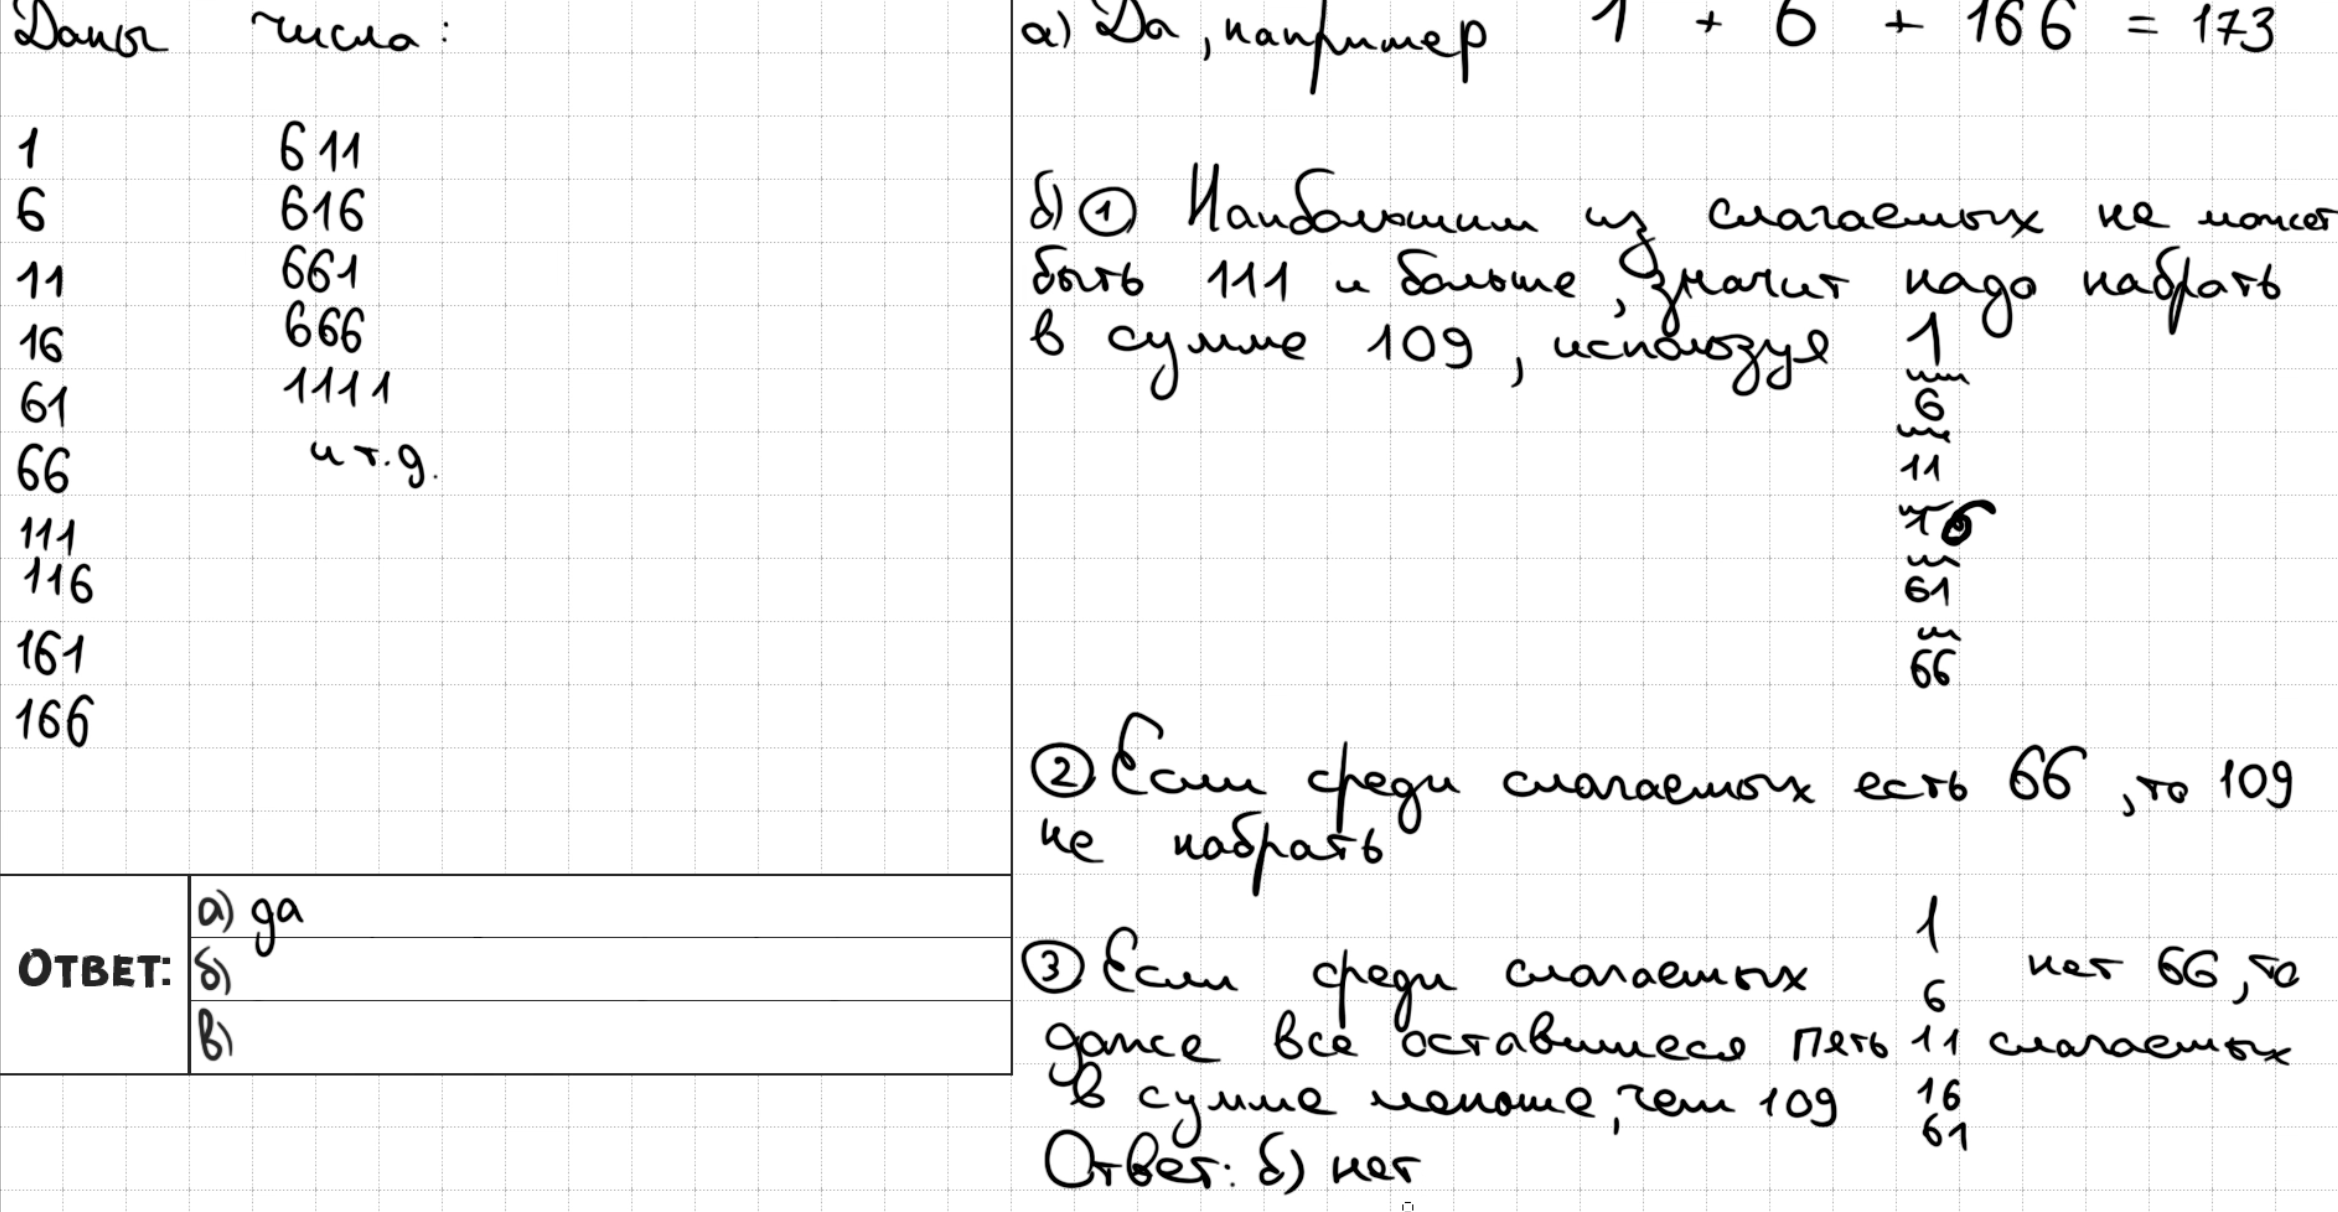 Даны числа:
1 611
6 616
11 661
16 666
61 1111
66 и т.д.
111
116
161
166
ОТВЕТ:
а) да
б)
в)
а) Да, например 1 + 6 + 166 = 173
б) ① Наибольшим из слагаемых не может
быть 111 и больше, значит надо набрать
в сумме 109, используя 1
6
11
16
61
66
② Если среди слагаемых есть 66, то 109
не набрать
③ Если среди слагаемых нет 66, то
даже все оставшиеся пять слагаемых
1
6
11
16
61
в сумме меньше, чем 109
Ответ: б) нет